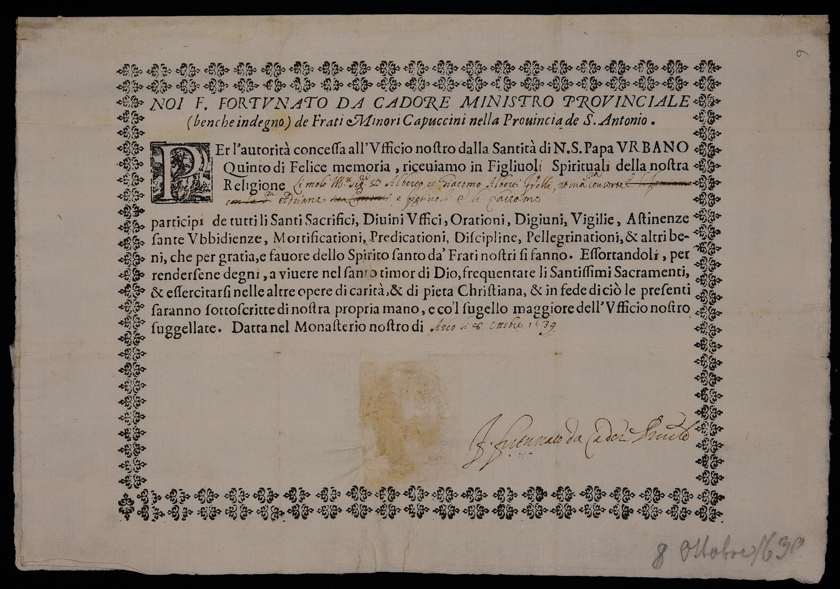 NOI F. FORTVNATO DA CADORE MINISTRO PROVINCIALE
(benche indegno) de Frati Minori Capuccini nella Prouincia de S. Antonio.
PEr l'autorità concessa all'Vfficio nostro dalla Santità di N. S. Papa VRBANO
Quinto di Felice memoria, riceuiamo in Figliuoli Spirituali della nostra
Religione Giacomo
participi de tutti li Santi Sacrifici, Diuini Vffici, Orationi, Digiuni, Vigilie, Astinenze
sante Vbbidienze, Mortificationi, Predicationi, Discipline, Pellegrinationi, & altri be-
ni, che per gratia, e fauore dello Spirito santo da' Frati nostri si fanno. Essortandoli, per
rendersene degni, a viuere nel santo timor di Dio, frequentate li Santissimi Sacramenti,
& essercitarsi nelle altre opere di carità, & di pieta Christiana, & in fede di ciò le presenti
saranno sottoscritte di nostra propria mano, e co'l sugello maggiore dell'Vfficio nostro
suggellate. Datta nel Monasterio nostro di
da Cador
8 Ottobre